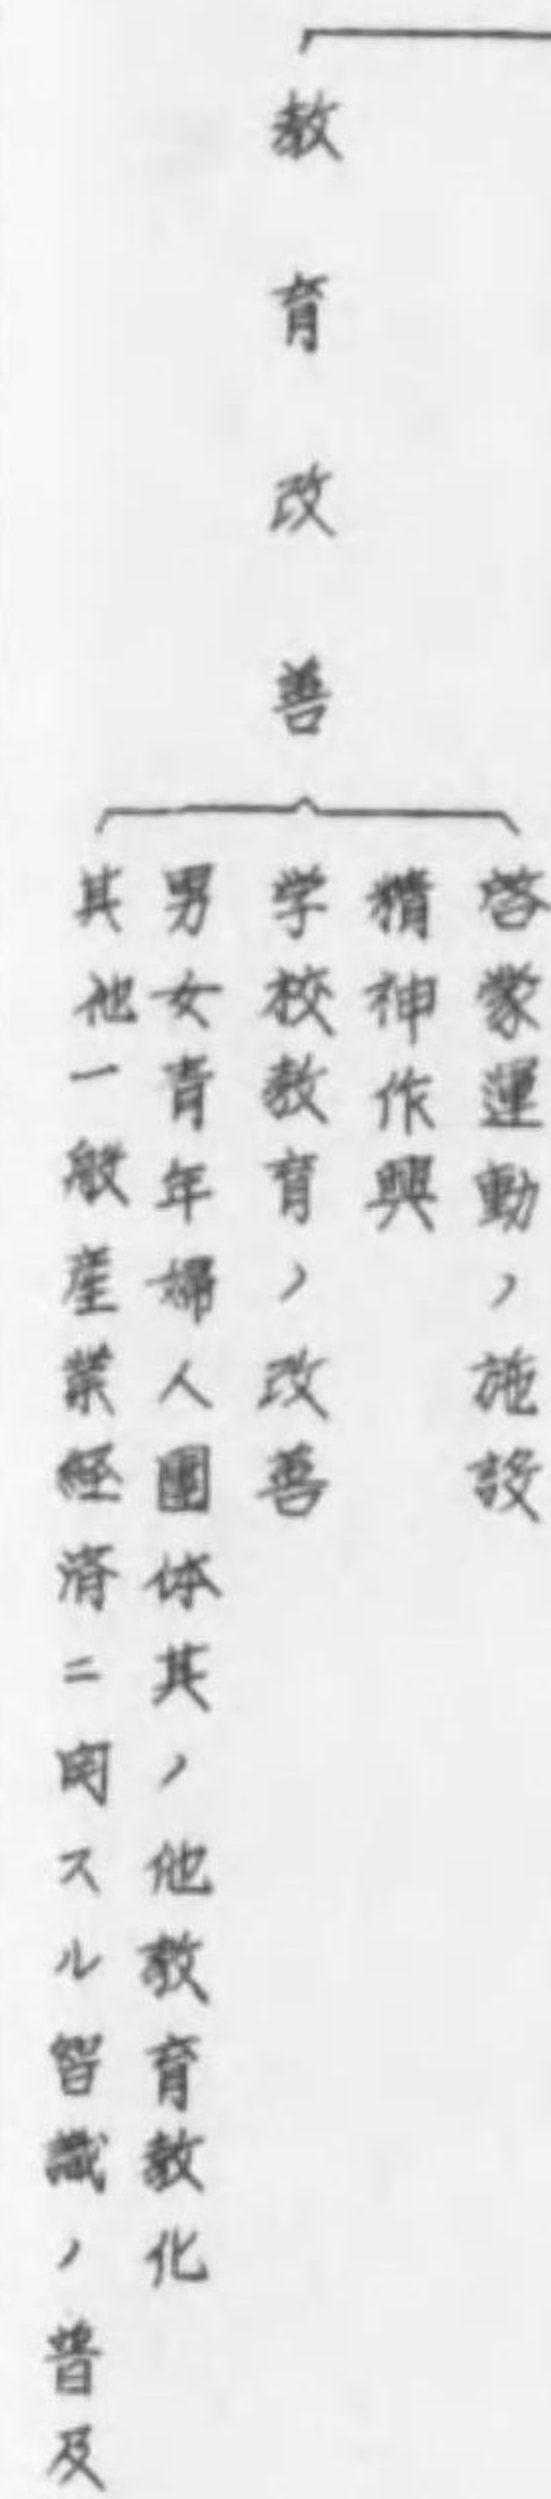 教育改善
啓蒙運動ノ施設
精神作興
学校教育ノ改善
男女青年婦人團体其ノ他教育教化
其他一般産業経済ニ関スル智識ノ普及